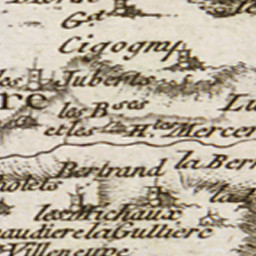 Gd
Cigograf
les Juberts
re
les Bses
Lu
et les Htes Mercer
la Ber
Bertrand
hotels
la
les Michaux
audiere la Gultiere
Villeneuve